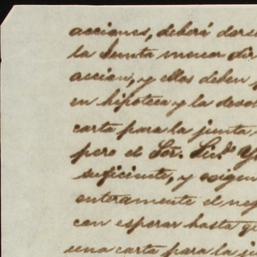 acciones, deberá darse
la Junta menor dir
accion, y ellos deben
en hipoteca y la devol
carta para la junta,
pero el Sor. Sind.º
suficiente, y exigen
enteramente el neg
con esperar hasta q
una carta para la ju